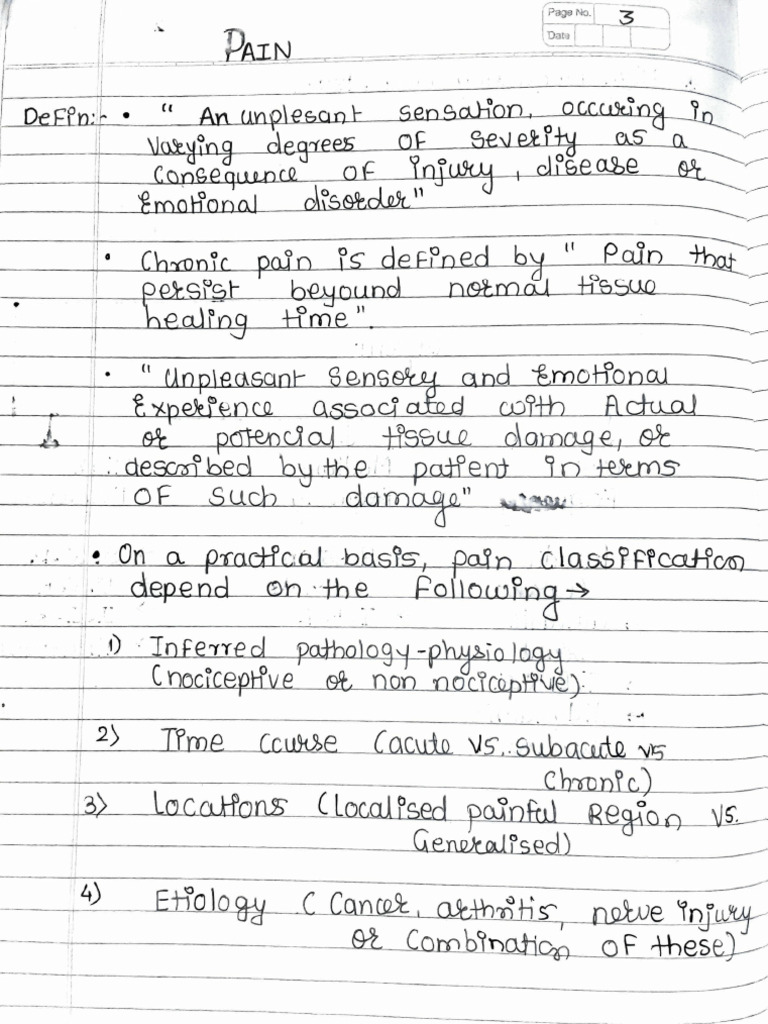 Page No. 3
Date
PAIN
Defin:- • " An unplesant sensation, occuring in
varying degrees of severity as a
consequence of injury, disease or
Emotional disorder"
• Chronic pain is defined by " Pain that
persist beyound normal tissue
healing time".
• " Unpleasant sensory and Emotional
Experience associated with Actual
or potencial tissue damage, or
described by the patient in terms
of such damage"
• On a practical basis, pain classification
depend on the following →
1) Inferred pathology-physiology
(nociceptive or non nociceptive)
2) Time course (acute vs. subacute vs
chronic)
3) Locations (localised painful Region vs.
Generalised)
4) Etiology ( Cancer, arthritis, nerve injury
or combination of these)